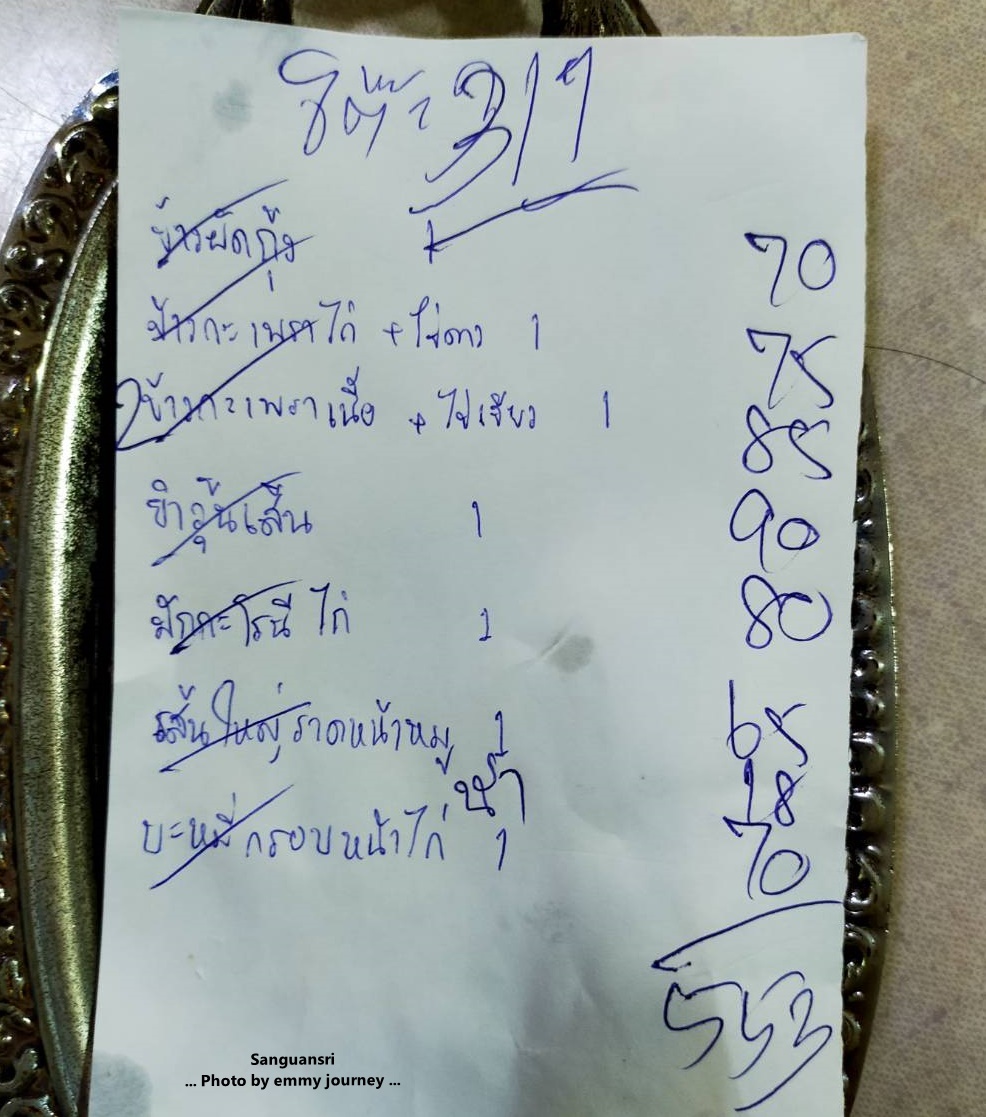 โต๊ะ 3/1
ข้าวผัดกุ้ง 1 70
ข้าวกะเพราไก่ + ไข่ดาว 1 75
ข้าวกะเพราเนื้อ + ไข่เจียว 1 85
ยำวุ้นเส้น 1 90
มักกะโรนี ไก่ 1 80
เส้นใหญ่ราดหน้าหมู 1 65
น้ำ 18
บะหมี่กรอบหน้าไก่ 1 70
553
Sanguansri
... Photo by emmy journey ...